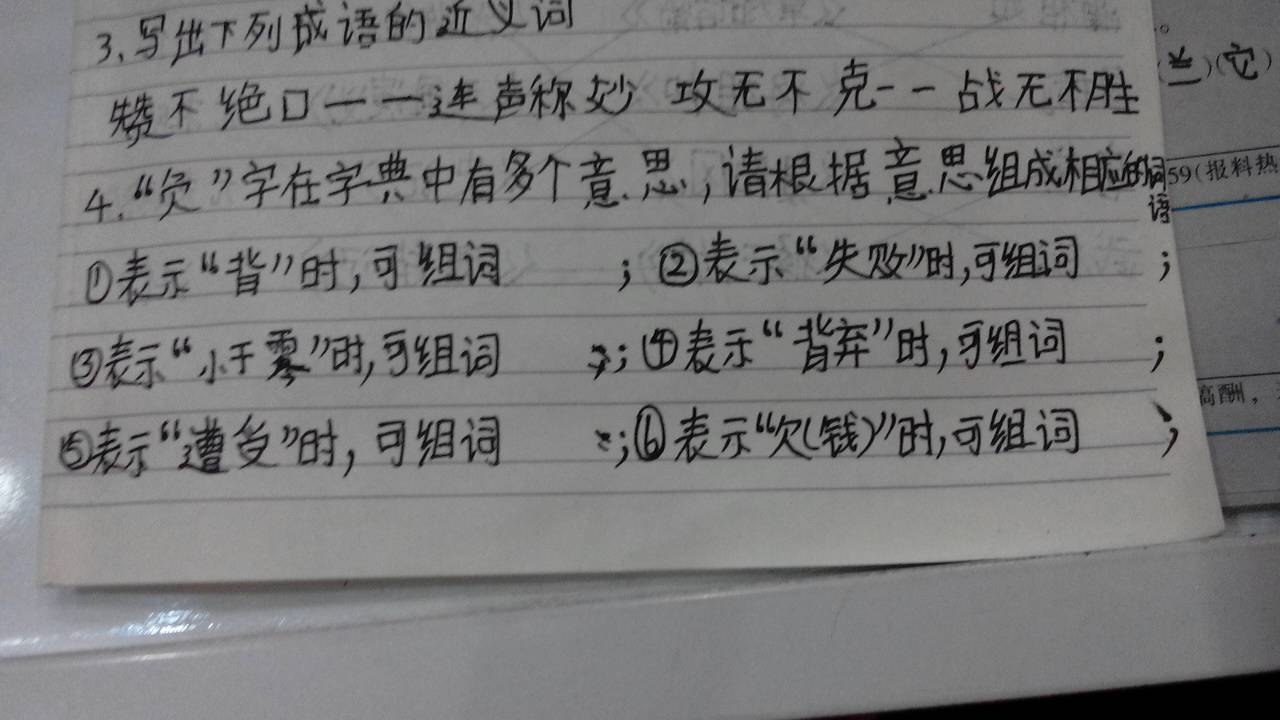 3.写出下列成语的近义词
赞不绝口——连声称妙 攻无不克--战无不胜
4.“负”字在字典中有多个意思,请根据意思组成相应的词语
①表示“背”时,可组词 ; ②表示“失败”时,可组词 ;
③表示“小于零”时,可组词 ; ④表示“背弃”时,可组词 ;
⑤表示“遭受”时,可组词 ; ⑥表示“欠(钱)”时,可组词 ;
。
(兰)(它)
59(报料热
高酬,